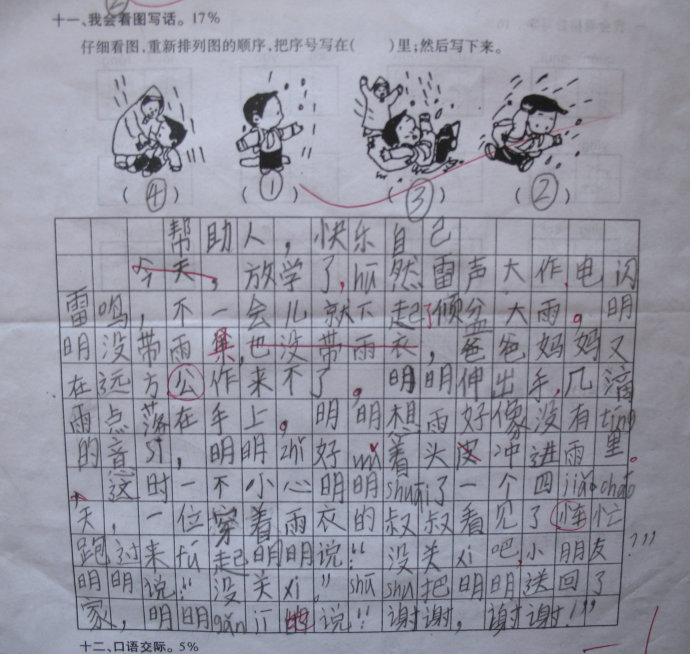 十一、我会看图写话。17%
仔细看图,重新排列图的顺序,把序号写在(　　)里;然后写下来。
(④) (①) (③) (②)
帮助人，快乐自己
今天，放学了，hū然雷声大作，电闪
雷鸣，不一会儿就下起了倾盆大雨。明
明没带雨，也没带雨衣，爸爸妈妈又
在远方公作来不了。明明伸出手，几滴
雨点落在手上。明明想雨好像没有tíng
的意sī，明明zhǐ好着头皮冲进雨里。
这时一不小心明明shuāi了一个四jiǎo cháo
天，一位穿着雨衣的叔叔看见了忙
跑过来fú起明明说：“没关xi吧，小朋友？”
明明说：“没关xi，”shū shu把明明送回了
家，明明gǎn jī地说：“谢谢，谢谢！”
十二、口语交际。5%